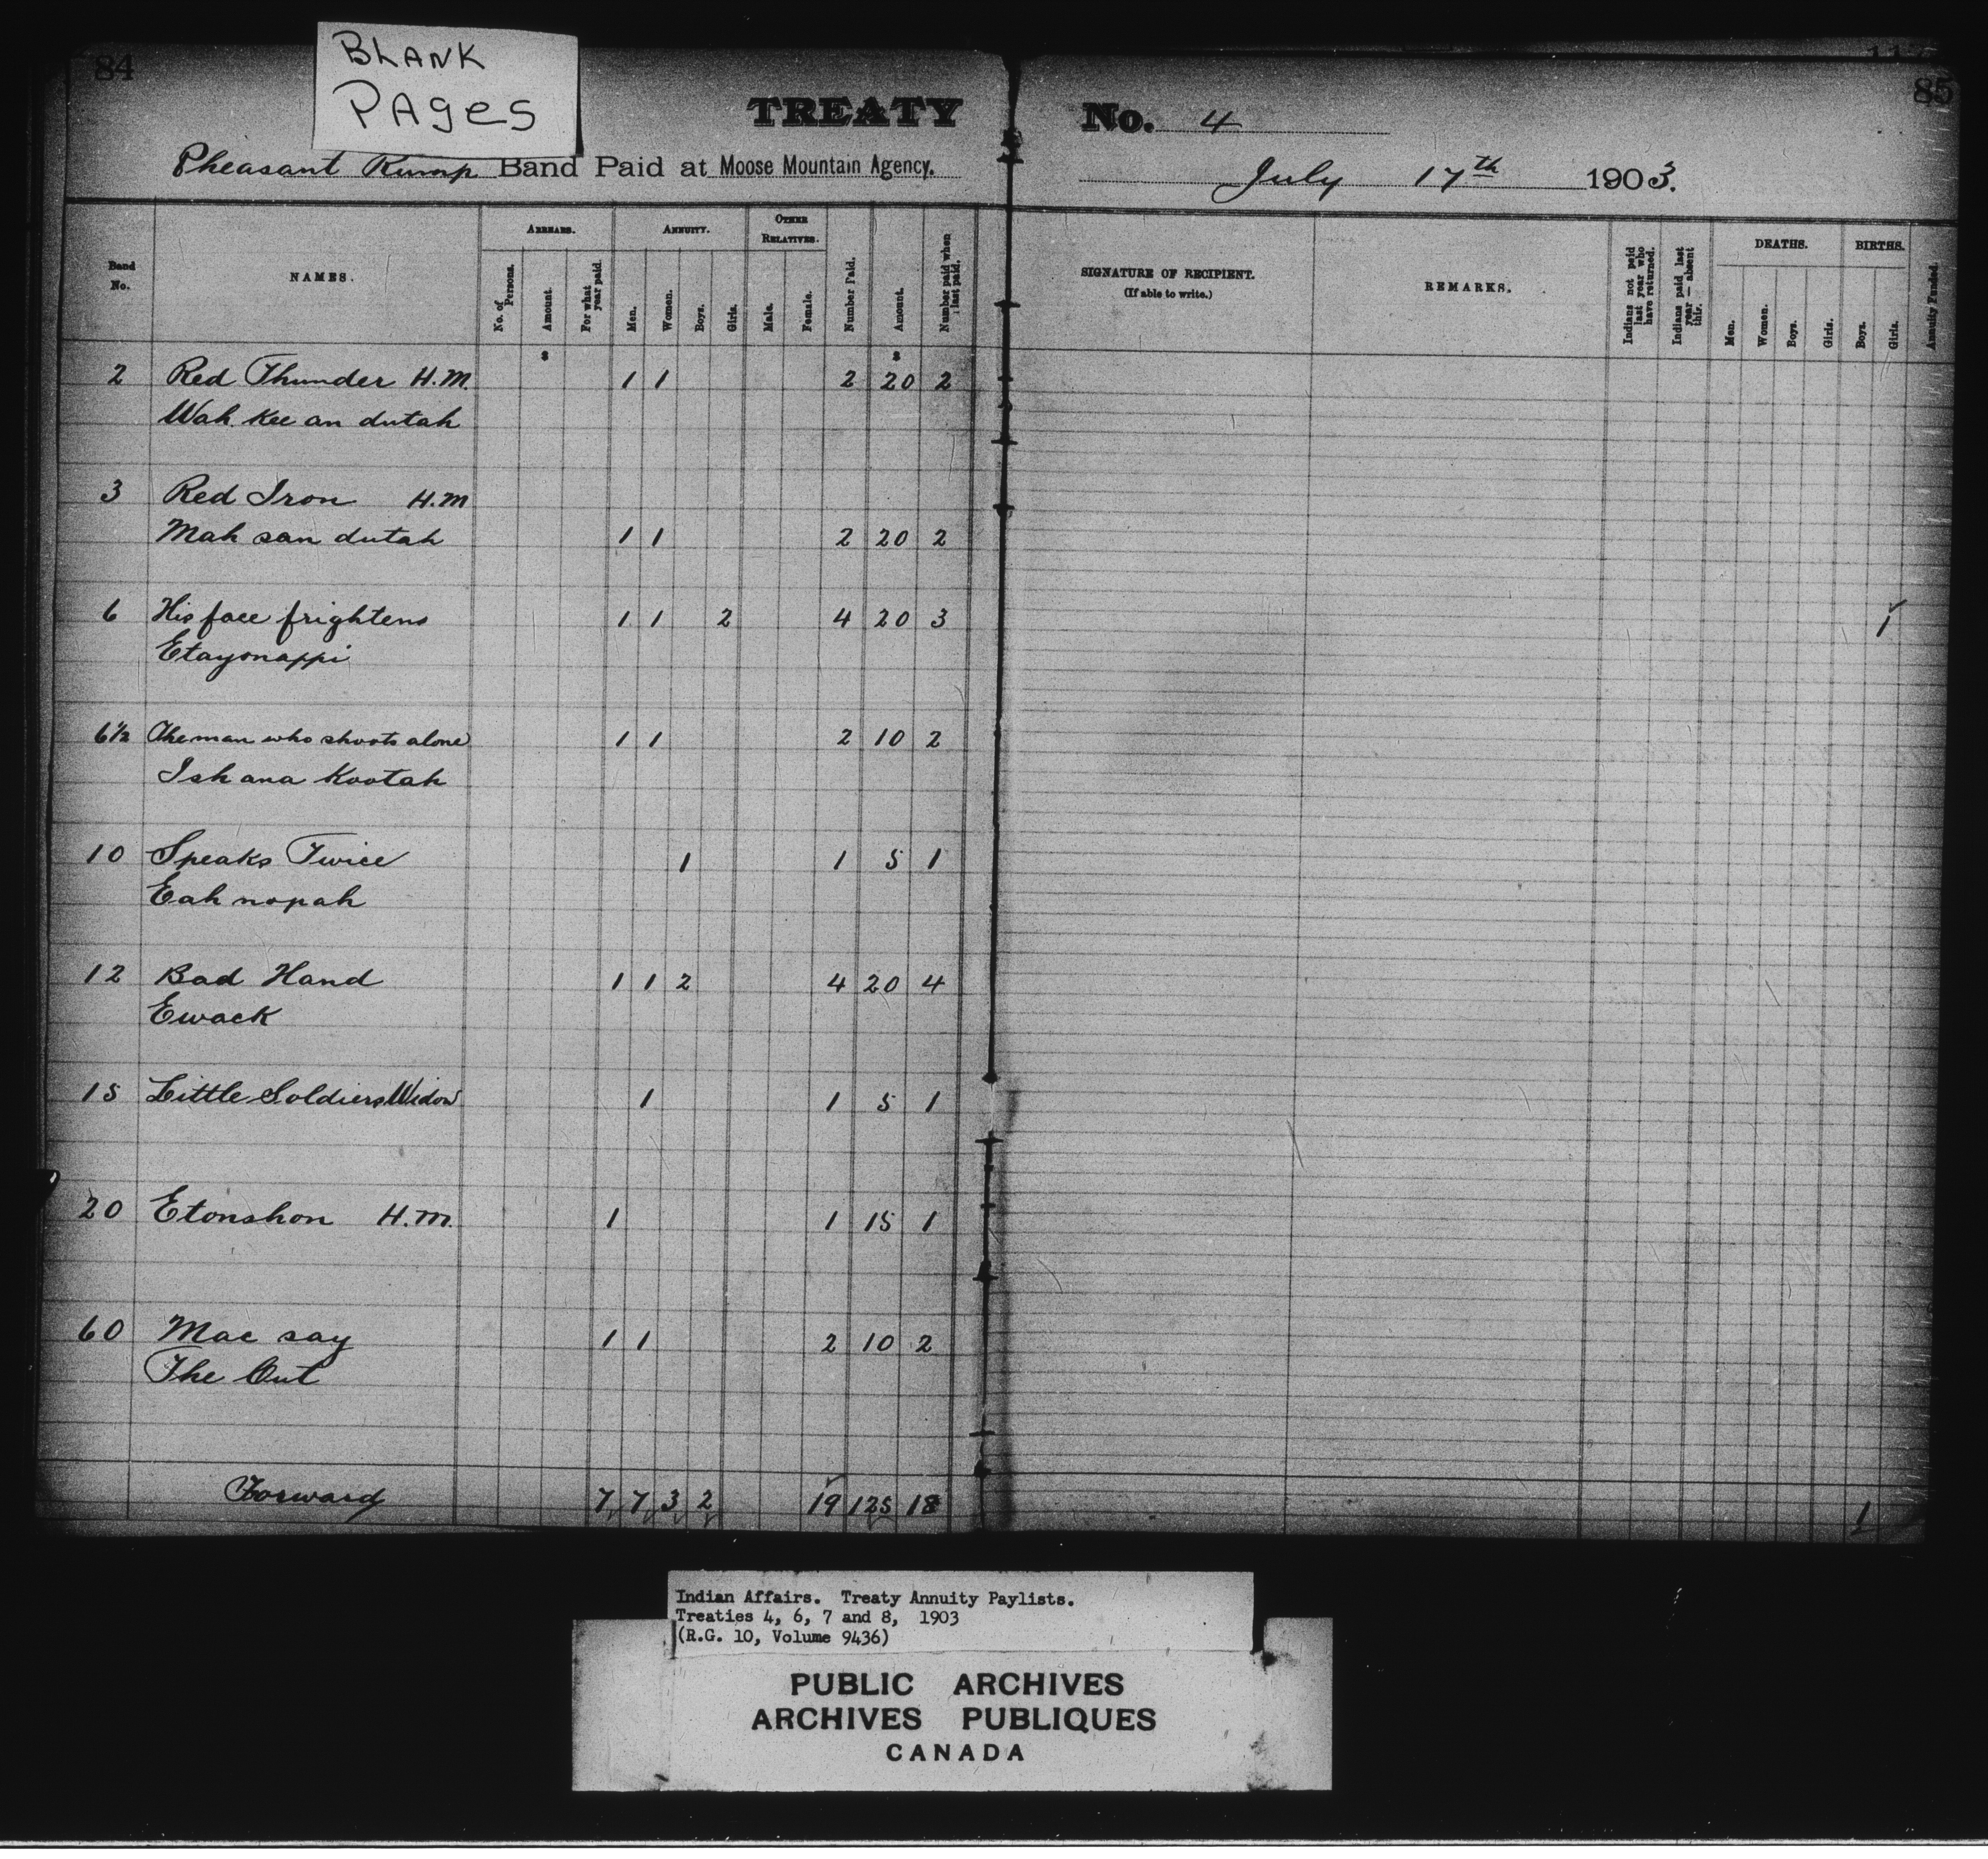 84
BLANK
PAGES
TREATY No. 4
85
Pheasant Rump Band Paid at Moose Mountain Agency. July 17th 1903.
Band No. NAMES. ARREARS. ANNUITY. OTHER RELATIVES. Number Paid. Amount. Number paid when last paid.
No. of Persons. Amount. For what year paid. Men. Women. Boys. Girls. Male. Female.
SIGNATURE OF RECIPIENT. (If able to write.) REMARKS. Indians not paid last year who have returned. Indians paid last year — absent this. DEATHS. BIRTHS. Annuity Funded.
Men. Women. Boys. Girls. Boys. Girls.
2 Red Thunder H.M. 1 1 2 20 2
Wah Kee an dutah
3 Red Iron H.M
Mah san dutah 1 1 2 20 2
6 His face frightens 1 1 2 4 20 3 1
Etayonappi
6½ The man who shoots alone 1 1 2 10 2
Ish ana Kootah
10 Speaks Twice 1 1 5 1
Eah nopah
12 Bad Hand 1 1 2 4 20 4
Ewack
15 Little Soldiers Widow 1 1 5 1
20 Etonshon H.M. 1 1 15 1
60 Mac say 1 1 2 10 2
The Out
Forward 7 7 3 2 19 125 18 1
Indian Affairs. Treaty Annuity Paylists.
Treaties 4, 6, 7 and 8, 1903
(R.G. 10, Volume 9436)
PUBLIC ARCHIVES
ARCHIVES PUBLIQUES
CANADA